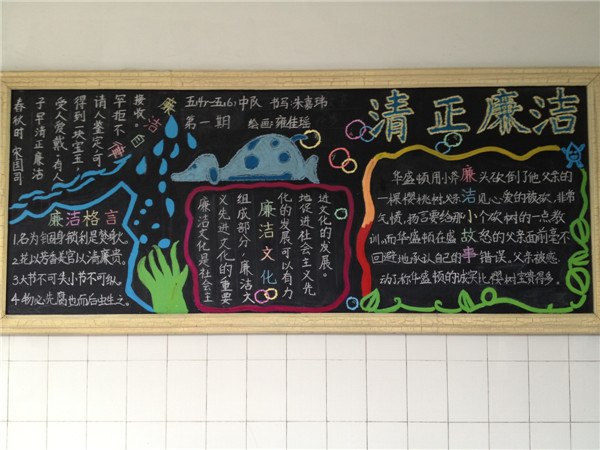 五(4)—五(6)中队 书写:朱嘉玮
第一期 绘画:雍佳瑶
清正廉洁
廉洁
春秋时 宋国司
子罕清正廉洁
受人爱戴,有人
得到一块宝玉,
请人鉴定可
罕拒不
接收。
廉洁格言
1.名为锢身锁利是焚身火
2.花以芳香美官以清廉贵。
3.大节不可失小节不可纵
4.物必先腐也而后虫生之。
廉洁文化
廉洁文化是社会主
义先进文化的重要
组成部分,廉洁文
化的发展可以有力
地促进社会主义先
进文化的发展。
廉洁小故事
华盛顿用小斧头砍倒了他父亲的
一棵樱桃树父亲见心爱的被砍,非常
气愤,扬言要给那个砍树的一点教
训。而华盛顿在盛怒的父亲面前毫不
回避地承认自己的错误,父亲被感
动了,称华盛顿的诚实比樱树宝贵得多。